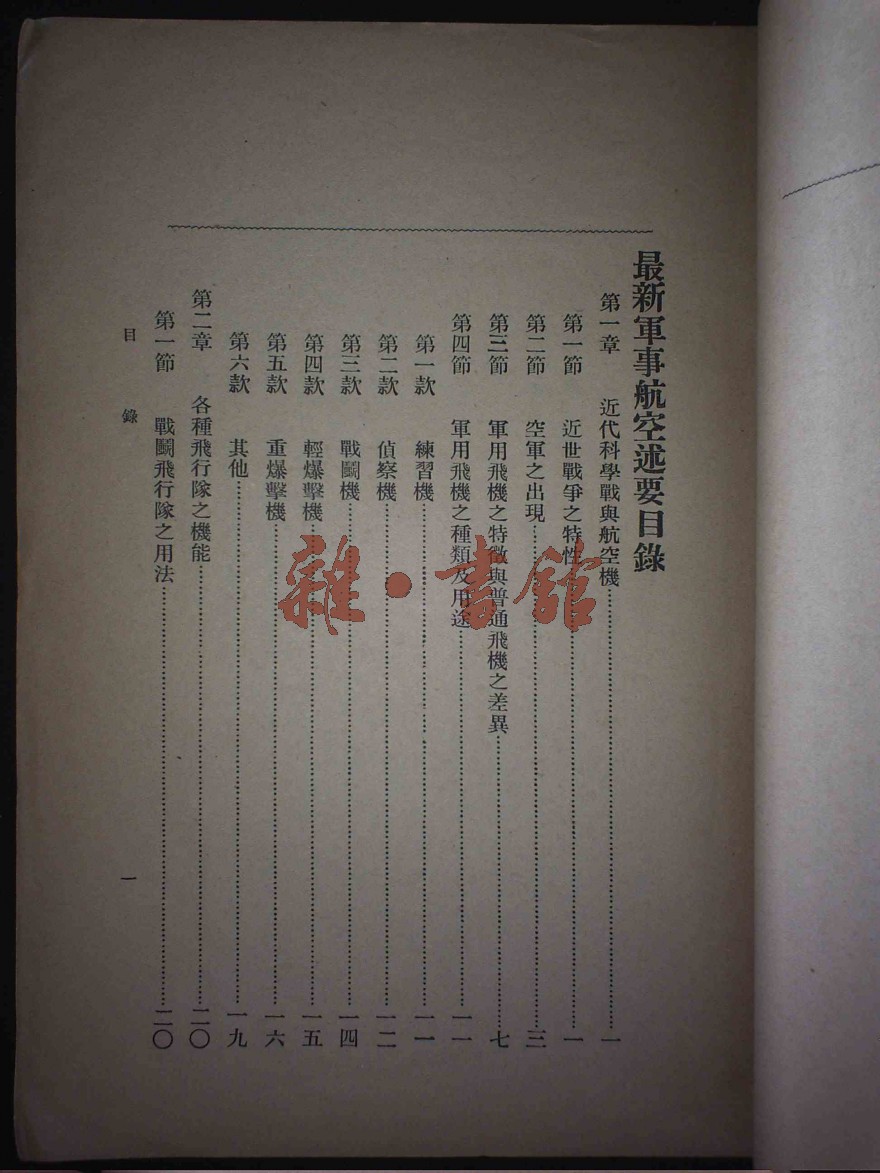 最新軍事航空述要目錄
第一章 近代科學戰與航空機……一
第一節 近世戰爭之特性……一
第二節 空軍之出現……三
第三節 軍用飛機之特徵與普通飛機之差異……七
第四節 軍用飛機之種類及用途……一一
第一款 練習機……一一
第二款 偵察機……一二
第三款 戰鬭機……一四
第四款 輕爆擊機……一五
第五款 重爆擊機……一六
第六款 其他……一九
第二章 各種飛行隊之機能……二〇
第一節 戰鬭飛行隊之用法……二〇
目錄 一
雜·書館